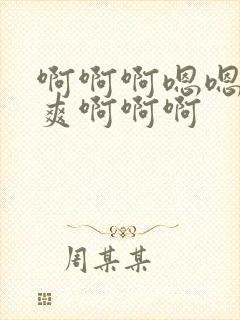 啊啊啊嗯嗯
爽啊啊啊
周某某